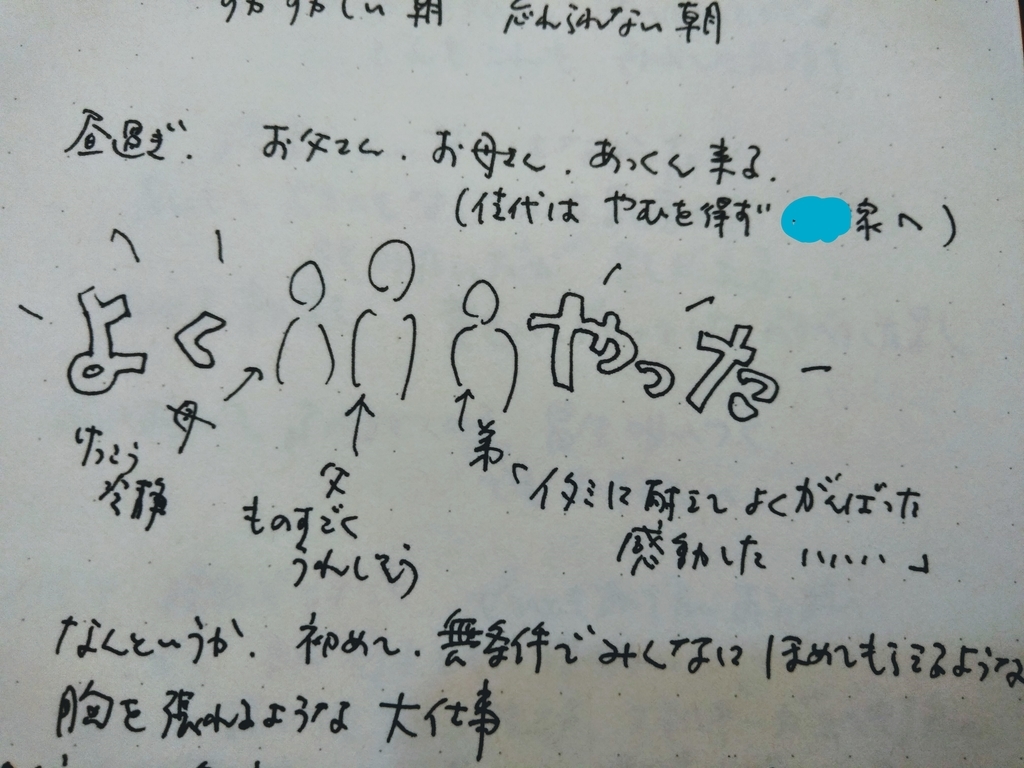 すがすがしい朝 忘れられない朝
昼過ぎ. お父さん.お母さん.あっくん来る.
(佳代は やむを得ず 家へ)
よく やった
母
けっこう
冷静
父
ものすごく
うれしそう
弟
「イタミに耐えてよくがんばった
感動した ・・・・・」
なんというか. 初めて.無条件でみんなにほめてもらえるような
胸を張れるような 大仕事